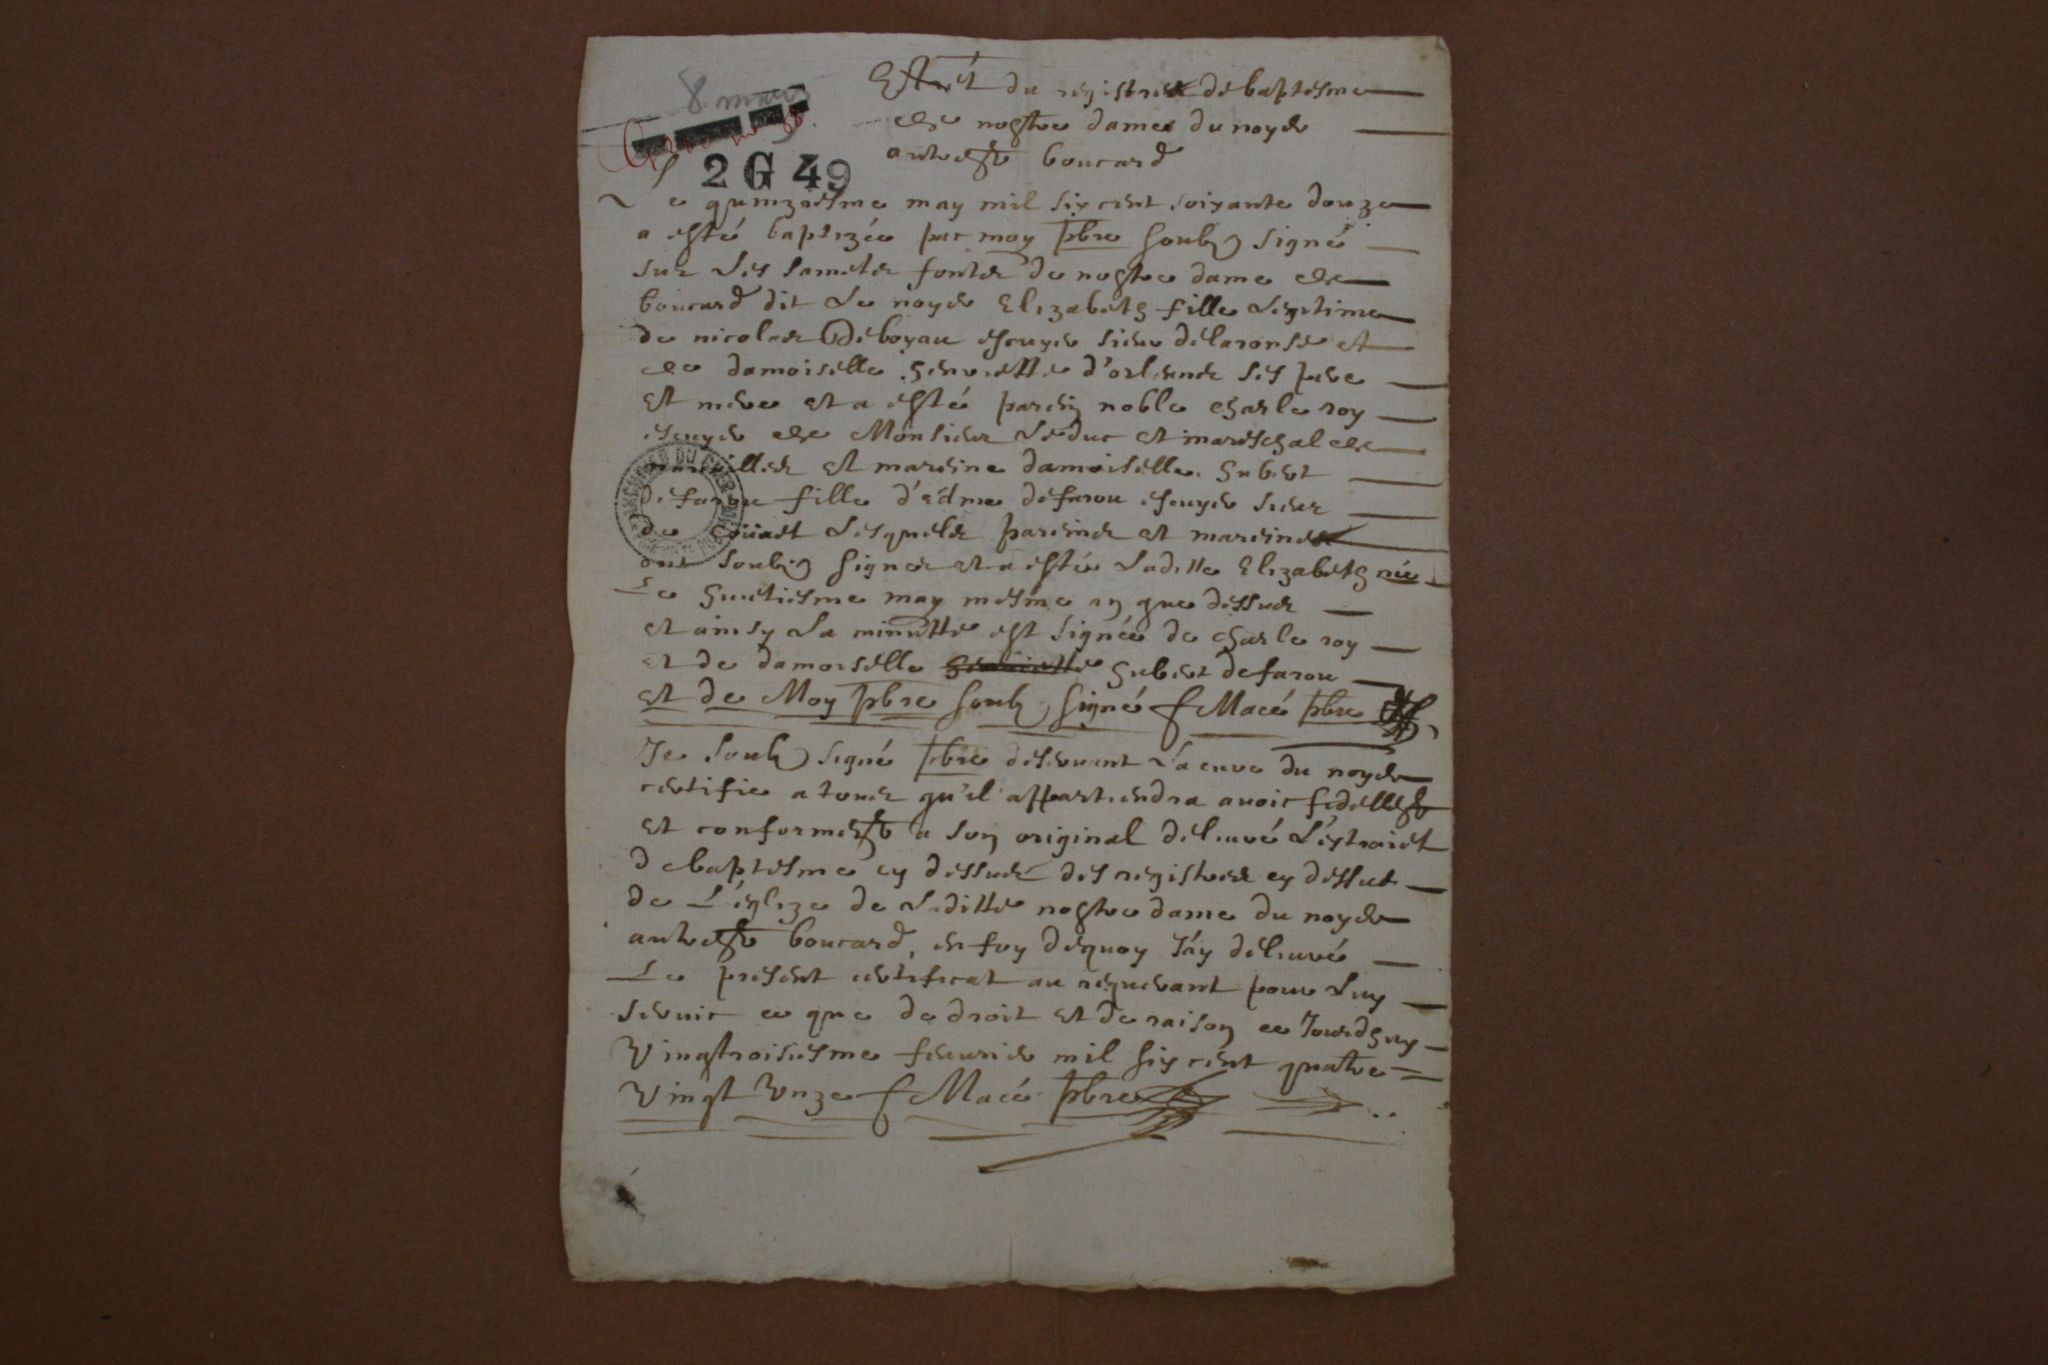 8 mars
2 G 49
Extrét du registre de baptesme
de nostre dame du noyer
autrest boucard
Le quinziesme may mil six cent soixante douze
a esté baptizée par moy pbre soubz signé
sur les saincts fonts de nostre dame de
boucard dit le noyer Elizabeth fille legitime
de nicolas deboyau escuyer sieur delaronse et
de damoiselle henriette d'orleans ses pere
et mere et a esté parein noble charle roy
escuyer de Monsieur le duc et mareschal de
et mareine damoiselle hubert
defarou fille d'edme defarou escuyer sieur
de lesquels pareins et mareines
ont soubz signes et a esté laditte Elizabeth née
Le huictiesme may mesme an que dessus
et ainsy la minutte est signée de charle roy
et de damoiselle henriette hubert defarou
et de Moy pbre soubz signé f Macé pbre
Je soubz signé pbre deservant la cure du noyer
certifie a tous qu'il appartiendra avoir fidellest
et conformest a son original delivré l'extraict
de baptesme cy dessus des registres cy dessus
de l'églize de laditte nostre dame du noyer
autrest boucard, en foy dequoy j'ay delivré
Le present certificat au requerant pour luy
servir ce que de droit et de raison ce jourdhuy
Vingtroisiesme fevrier mil six cent quatre
Vingt Unze f Macé pbre